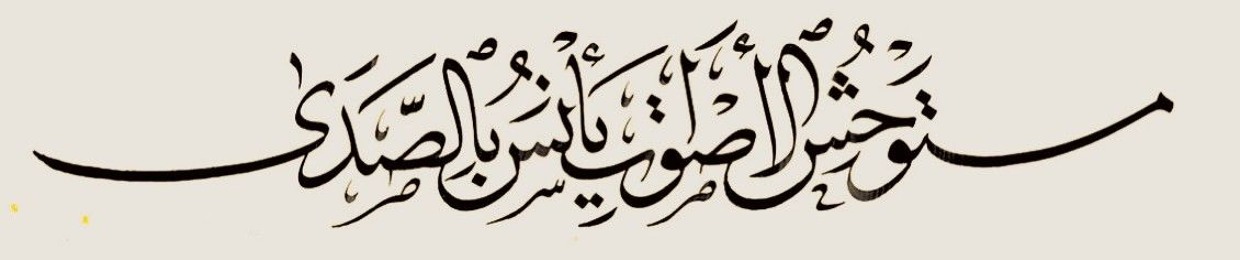 مستَوْحِشُ ٱلأَصْوَاتِ يَأْنَسُ بِٱلصَّدَى